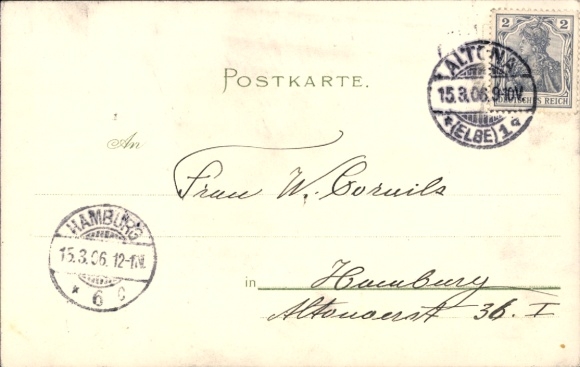 2 2
DEUTSCHES REICH
ALTONA
15.3.06.9-10V.
* (ELBE) 1 a
POSTKARTE.
An
Frau W. Cornils
HAMBURG
15.3.06.12-1N.
* 6 c
in Hamburg
Altonaerst 36. I